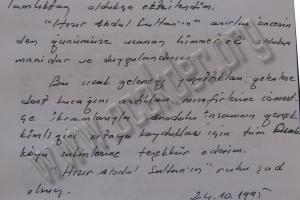 oldukça etkilendim.
"Hızır Abdal Sultan'ın" asırlar öncesin
den günümüze uzanan himmetleri oldukça
manidar ve duygulandırıcı.
Bu sıcak geleneği yaşattıkları, gelenlere
dost kucağını açtıkları misafirlerine cömert-
çe ikramlarıyla Anadolu insanının gerçek
kimliğini ortaya koydukları için tüm Ocak
köyü sakinlerine teşekkür ederim.
Hızır Abdal Sultan'ın ruhu şad
olsun.
24.10.1995